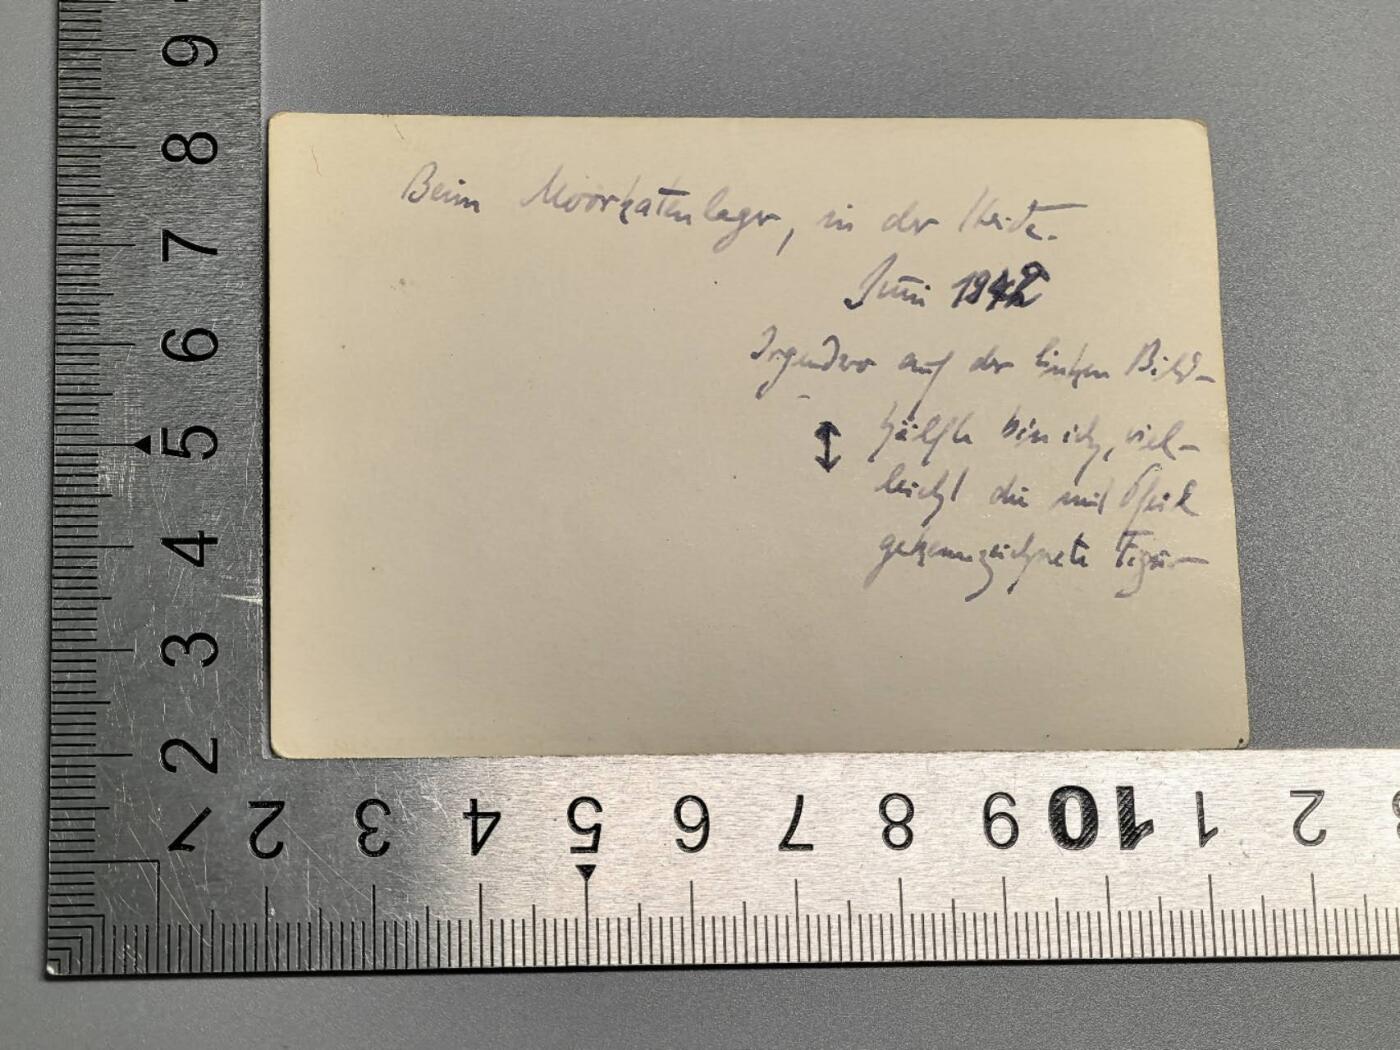 Beim Moorkatenlager, in der Heide.
Juni 1942
Irgendwo auf der linken Bild-
hälfte bin ich, viel-
leicht die mit Pfeil
gekennzeichnete Figur
9
8
7
6
5
4
3
2
1 2 3 4 5 6 7 8 9 10 1 2